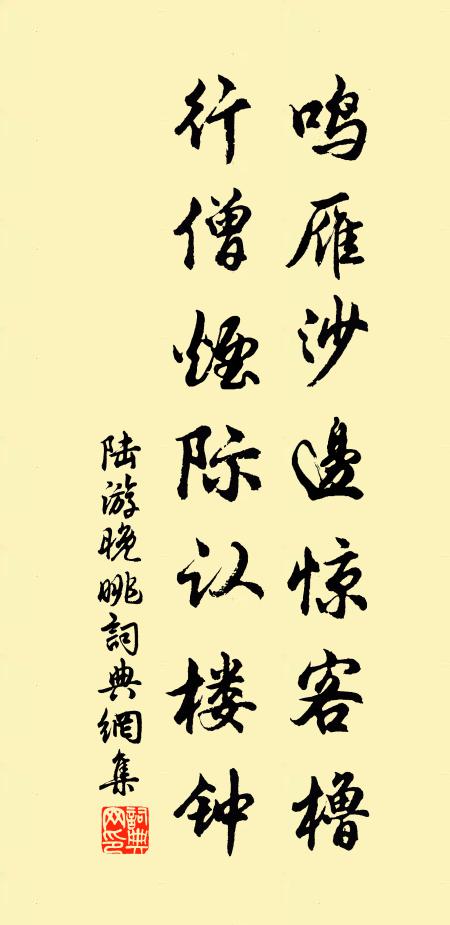 鸣雁沙邊惊客橹
行僧煙际认楼钟
陆游晚眺詞典網集
詞典网印